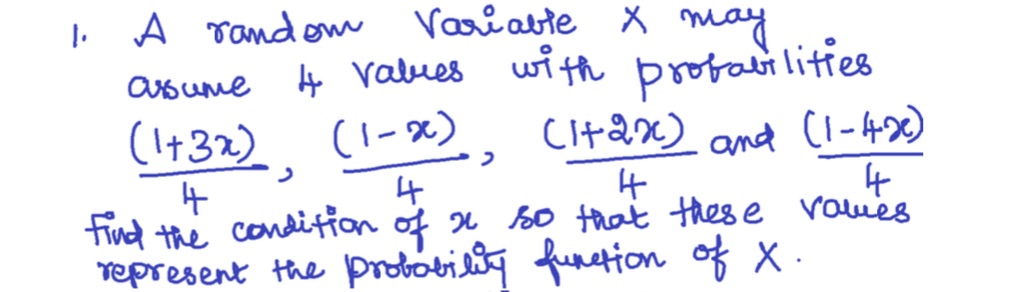 1. A random Variable X may
assume 4 values with probabilities
(1+3x)/4, (1-x)/4, (1+2x)/4 and (1-4x)/4
find the condition of x so that these values
represent the probability function of X.